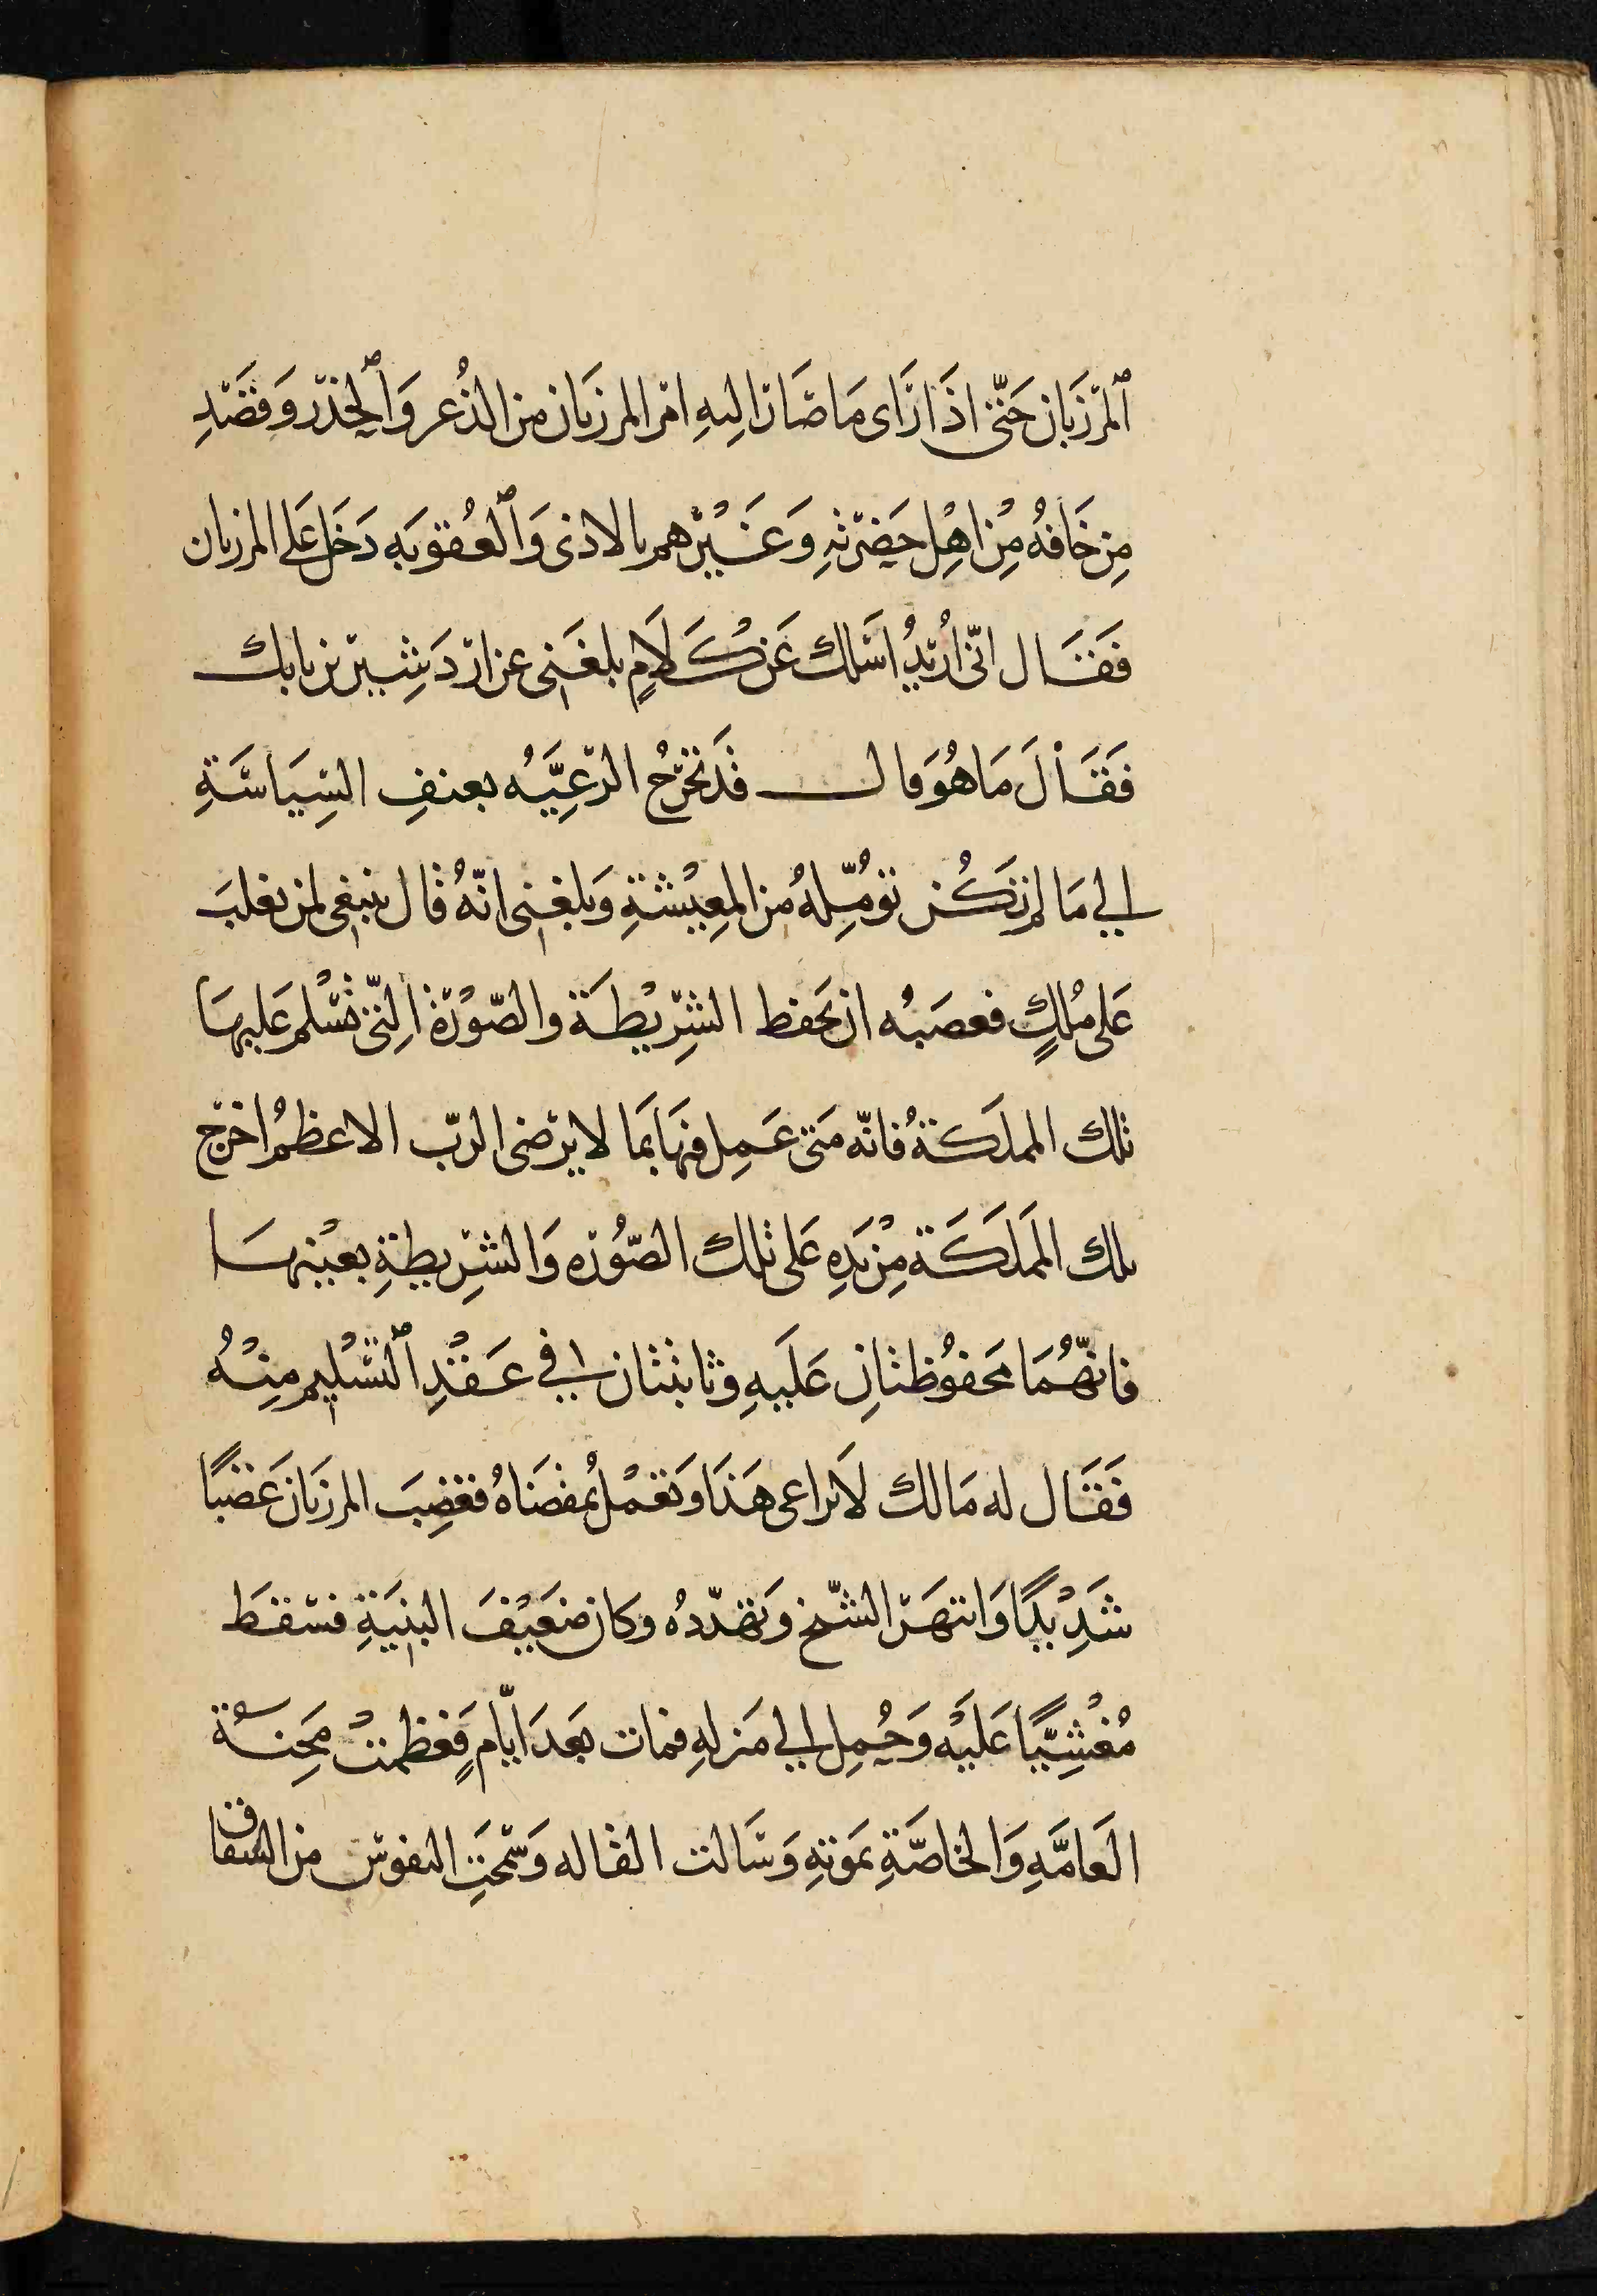 ٱلمرزَبان حَتّى اذَا رَاى مَا صَارَ اليهِ امر المرزبَان من الذُعر وَٱلحِذر وَقصَدِ
مِن خَافهُ مِن اهِلِ حَضرتهِ وَغَيْرهم بالاذى وَٱلعُقوبَهِ دَخَل عَلى المرزبان
فَقَال انّى اُريدُ اسَلك عَن كَلَامٍ بلغَنى عن اردَشِير بن بابك
فَقَالَ مَا هُوَ قال قَد تخرُجُ الرعِيَّهُ بعنفِ السِيَاسَةِ
الي مَا لم تكُن تؤمِّلهُ من المعِيْشةِ وَبلغنى انّهُ قال ينبغى لمن تغلبَ
عَلى مُلكٍ فعصَبهُ ان يَحفظ الشرِيْطَة والصّوْرةَ الِتّى تسْلم عَليهَا
تلك المملَكةُ فانّه مَتى عَمِل فيهَا بمَا لا يرضى الربّ الاعظمُ اخرَج
تلك المَملَكَة مِنْ يَدِهِ عَلى تلك الصّوُره وَالشرِيطةِ بعيْنهَا
فانّهُمَا مَحفوُظتانِ عَلَيهِ وثابتتان في عَقْدِ ٱلتسْليم مِنْهُ
فَقَال له مَالك لَا تراعى هَذا وَتعَمْلُ بمُقضَاهُ فغضِبَ المرزبَان غَضبًا
شَدِيْدًا وَانتهَرَ الشّيخ وَتهَدّدهُ وكان ضَعَيْفَ البنيَةِ فسَقطَ
مُغشِيًّا عَليْهِ وَحُمِل الي مَنزلهِ فمات بَعدَ ايّامٍ فعَظمتْ مَحِنةُ
العَامَّهِ وَالخاصَّةِ بمَوتهِ وَسَالت القاله وَسَمحَتِ النفوسُ من الشقاق